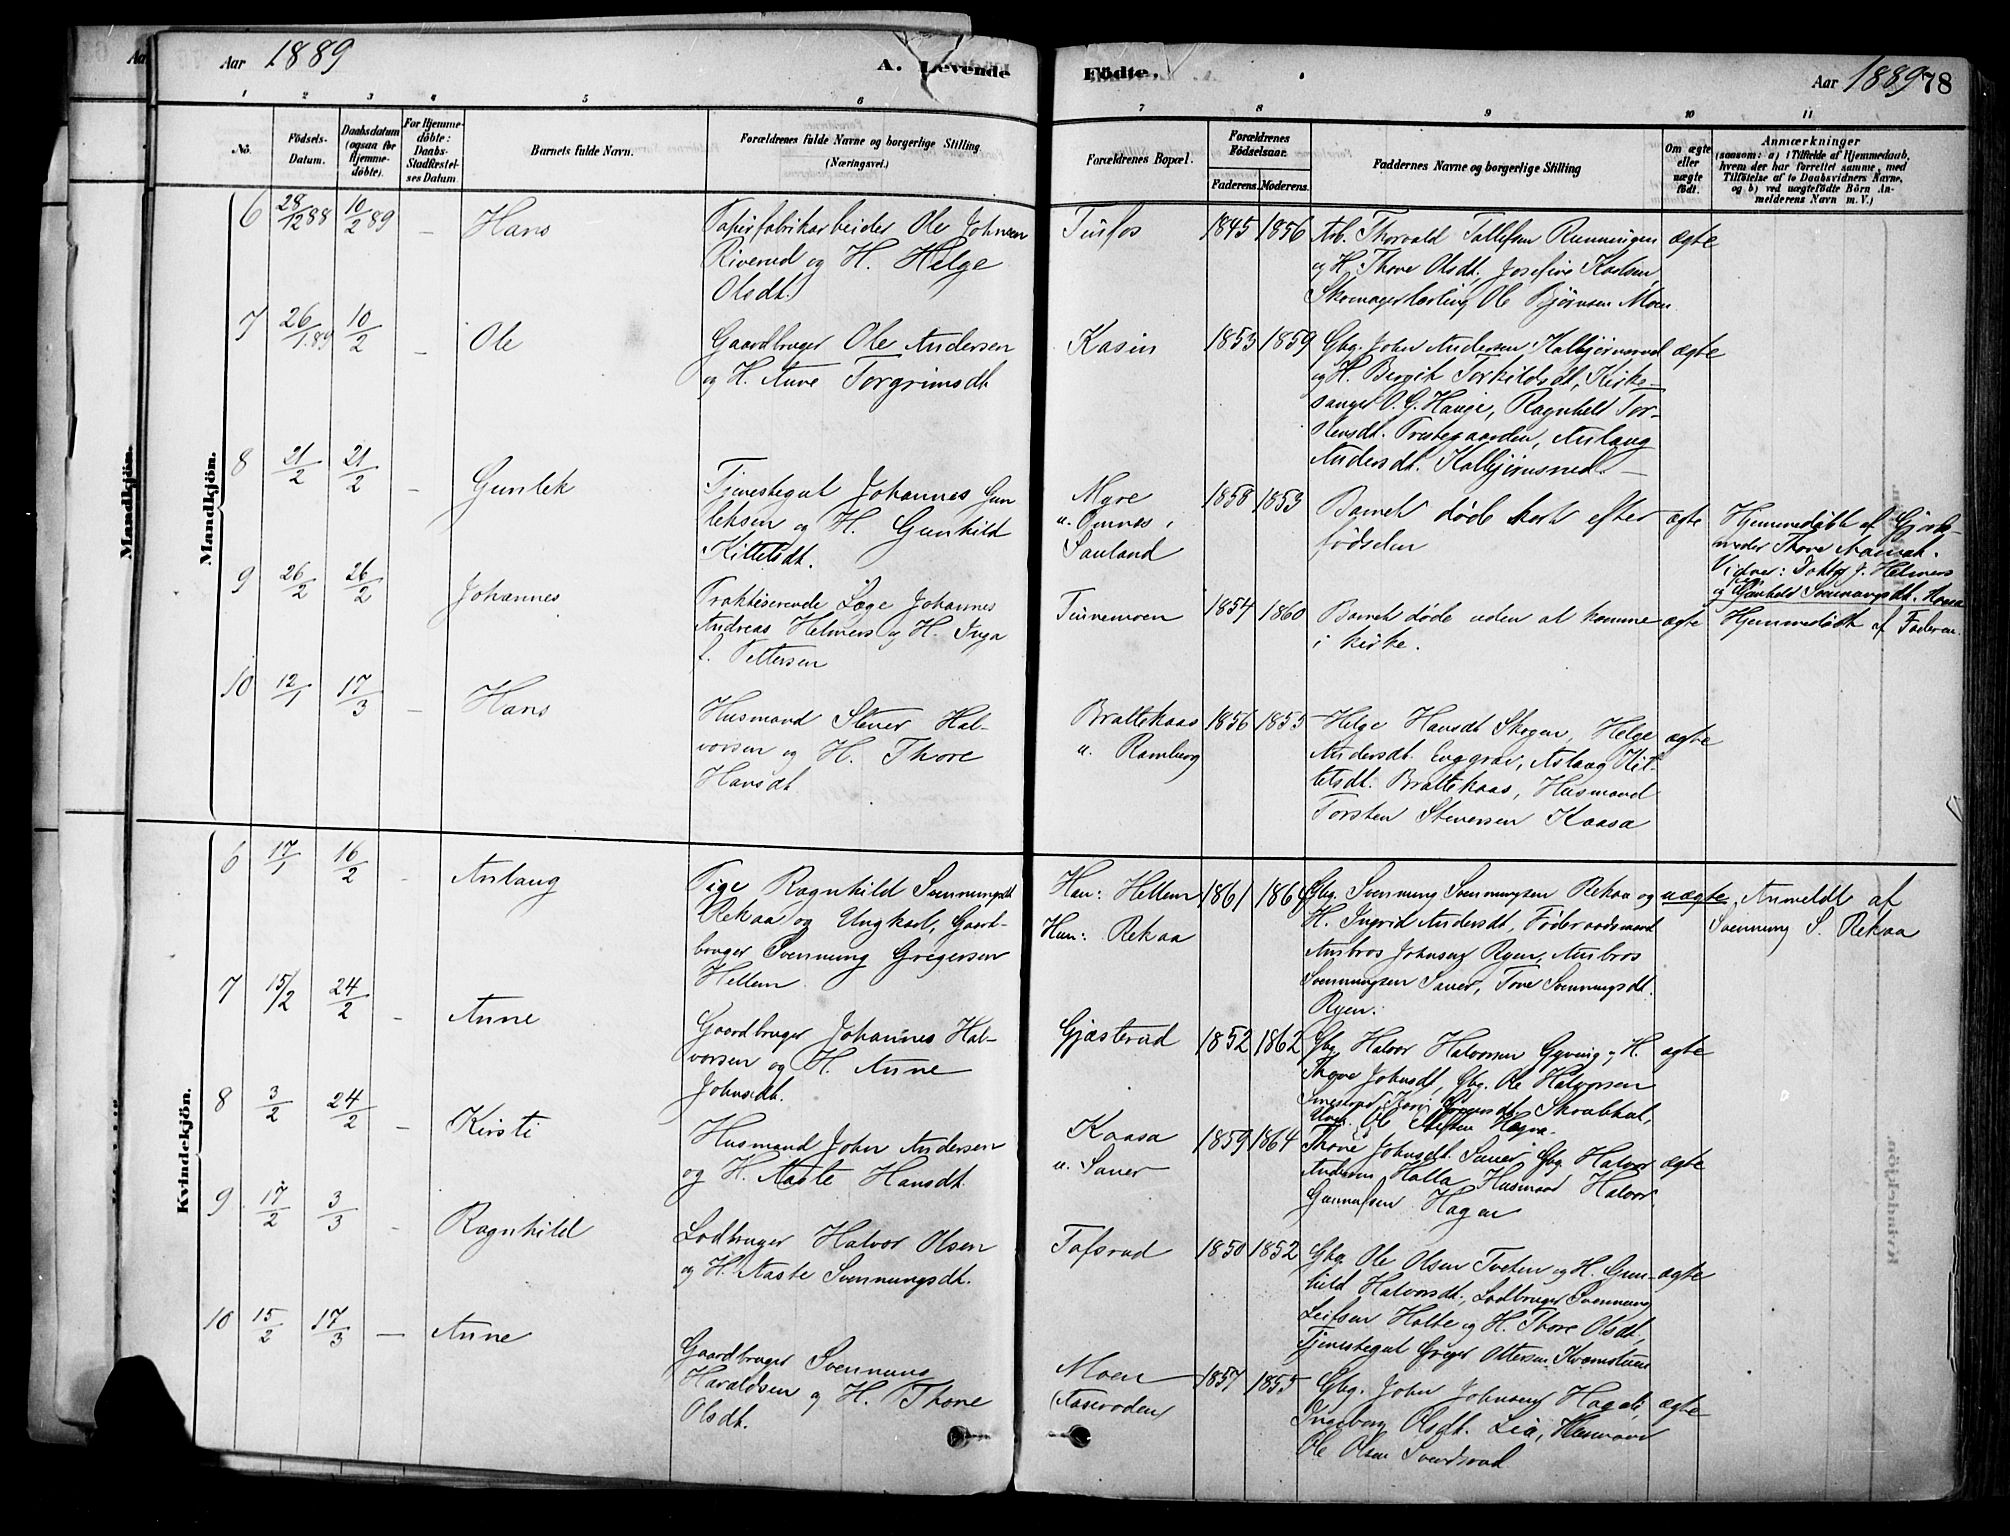 Aar 1889
A. Levende
Fødte.
Aar 1889
78
1 2 3 4 5 6
7 8 9 10 11
No.
Fødsels-
Datum.
Daabsdatum
(ogsaa for
Hjemme-
døbte).
For Hjemme-
døbte:
Daabs-
Stadfæstel-
ses Datum.
Barnets fulde Navn.
Forældrenes fulde Navne og borgerlige Stilling
(Næringsvei.)
Forældrenes Bopæl.
Forældrenes
Fødselsaar.
Faderens. Moderens.
Faddernes Navne og borgerlige Stilling
Om ægte
eller
uægte
født.
Anmærkninger
(saasom: a) i Tilfælde af Hjemmedaab,
hvem der har forrettet samme, med
Tilføielse af to Daabsvidners Navne,
og b) ved uægtefødte Børn An-
melderens Navn m. V.)
Mandkjön.
Mandkjön.
6 28/12 88 10/2 89 – Hans
Papirfabrikarbeider Ole Johnsen
Riverud og H. Helge
Olsdt.
Tinfos 1845 1856
Arb. Thorvald Tollefsen Runningen
og H. Thone Olsdt, Josefine Karlsen,
Skomagerlærling Ole Bjørnsen Moen
ægte
7 26/1 89 10/2 – Ole
Gaardbruger Ole Andersen
og H. Anne Torgrimsdt.
Kasin 1853 1859
Gbg. John Andersen Kalbjørnsrud
og H. Bergit Torkildsdt, Kirke-
sanger O. G. Hauge, Ragnhild Tor-
stensdt. Præstegaarden, Aslaug
Andersdt. Kalbjørnsrud.
ægte
8 21/2 21/2 – Gunlek
Tjenestegut Johannes Gun-
leksen og H. Gunhild
Kittelsdt.
Myre
u. Omnes i
Sauland
1858 1853
Barnet døde kort efter
fødselen
ægte
Hjemmedøbt af Gjord-
moder Thone
Vidner: Doktor J. Helmers
og Gunhild Svenningsdt. Kaasa
9 26/2 26/2 Johannes
Praktiserende Læge Johannes
Andreas Helmers og H. Inga
f. Pettersen
Tinnemoen 1854 1860
Barnet døde uden at komme
i kirke.
ægte
Hjemmedøbt af Faderen.
10 12/1 17/3 – Hans
Husmand Stener Hal-
vorsen og H. Thore
Hansdt.
Brattekaas
u. Ramberg
1856 1855
Helge Hansdt Skogen, Helge
Andersdt. Enggrav, Aslaug Kit-
telsdt. Brattekaas, Husmand
Torsten Stenersen Kaasa
ægte
Kvindekjön.
6 17/1 16/2 – Aslaug
Pige Ragnhild Svenningsdt
Rekaa og Ungkarl, Gaard-
bruger Svennung Gregersen
Hellem
Han: Hellem
Hun: Rekaa
1861 1864
Gbg. Svennung Svennungsen Rekaa og
H. Ingrid Andersdt, Føderaadsmand
Ansbros Johnsen Ryen, Ansbros
Svennungsen Sauer, Tone Svennungsdt.
Ryen.
uægte
Anmeldt af
Svennung S. Rekaa
7 15/2 24/2 – Anne
Gaardbruger Johannes Hal-
vorsen og H. Anne
Johnsdt.
Gjæsterud 1852 1862
Gbg. Halvor Halvorsen Gyving og H.
Thone Johnsdt, Gbg. Ole Halvorsen
Skrabhal,
ægte
8 3/2 24/2 – Kirsti
Husmand John Andersen
og H. Aaste Hansdt.
Kaasa
u. Sauer
1859 1864
Thone Johnsdt. Sauer, Gbg. Halvor
Andersen Holla, Husmand Halvor
Gunnulfsen Hagen
ægte
9 17/2 3/3 – Ragnhild
Lodbruger Halvor Olsen
og H. Aaste Svennungsdt.
Tofsrud 1850 1852
Gbg. Ole Olsen Tveten og H. Gun-
hild Halvorsdt., Lodbruger Svennung
Leifsen Holte og H. Thore Olsdt.
Tjenestegut Greger Ottersen
ægte
10 15/2 17/3 – Anne
Gaardbruger Svennung
Haraldsen og H. Thone
Olsdt.
Moen
1857 1855
Gbg. John Johnsen Hagen,
Ingeborg Olsdt. Lia, Husmand
Ole Olsen
ægte